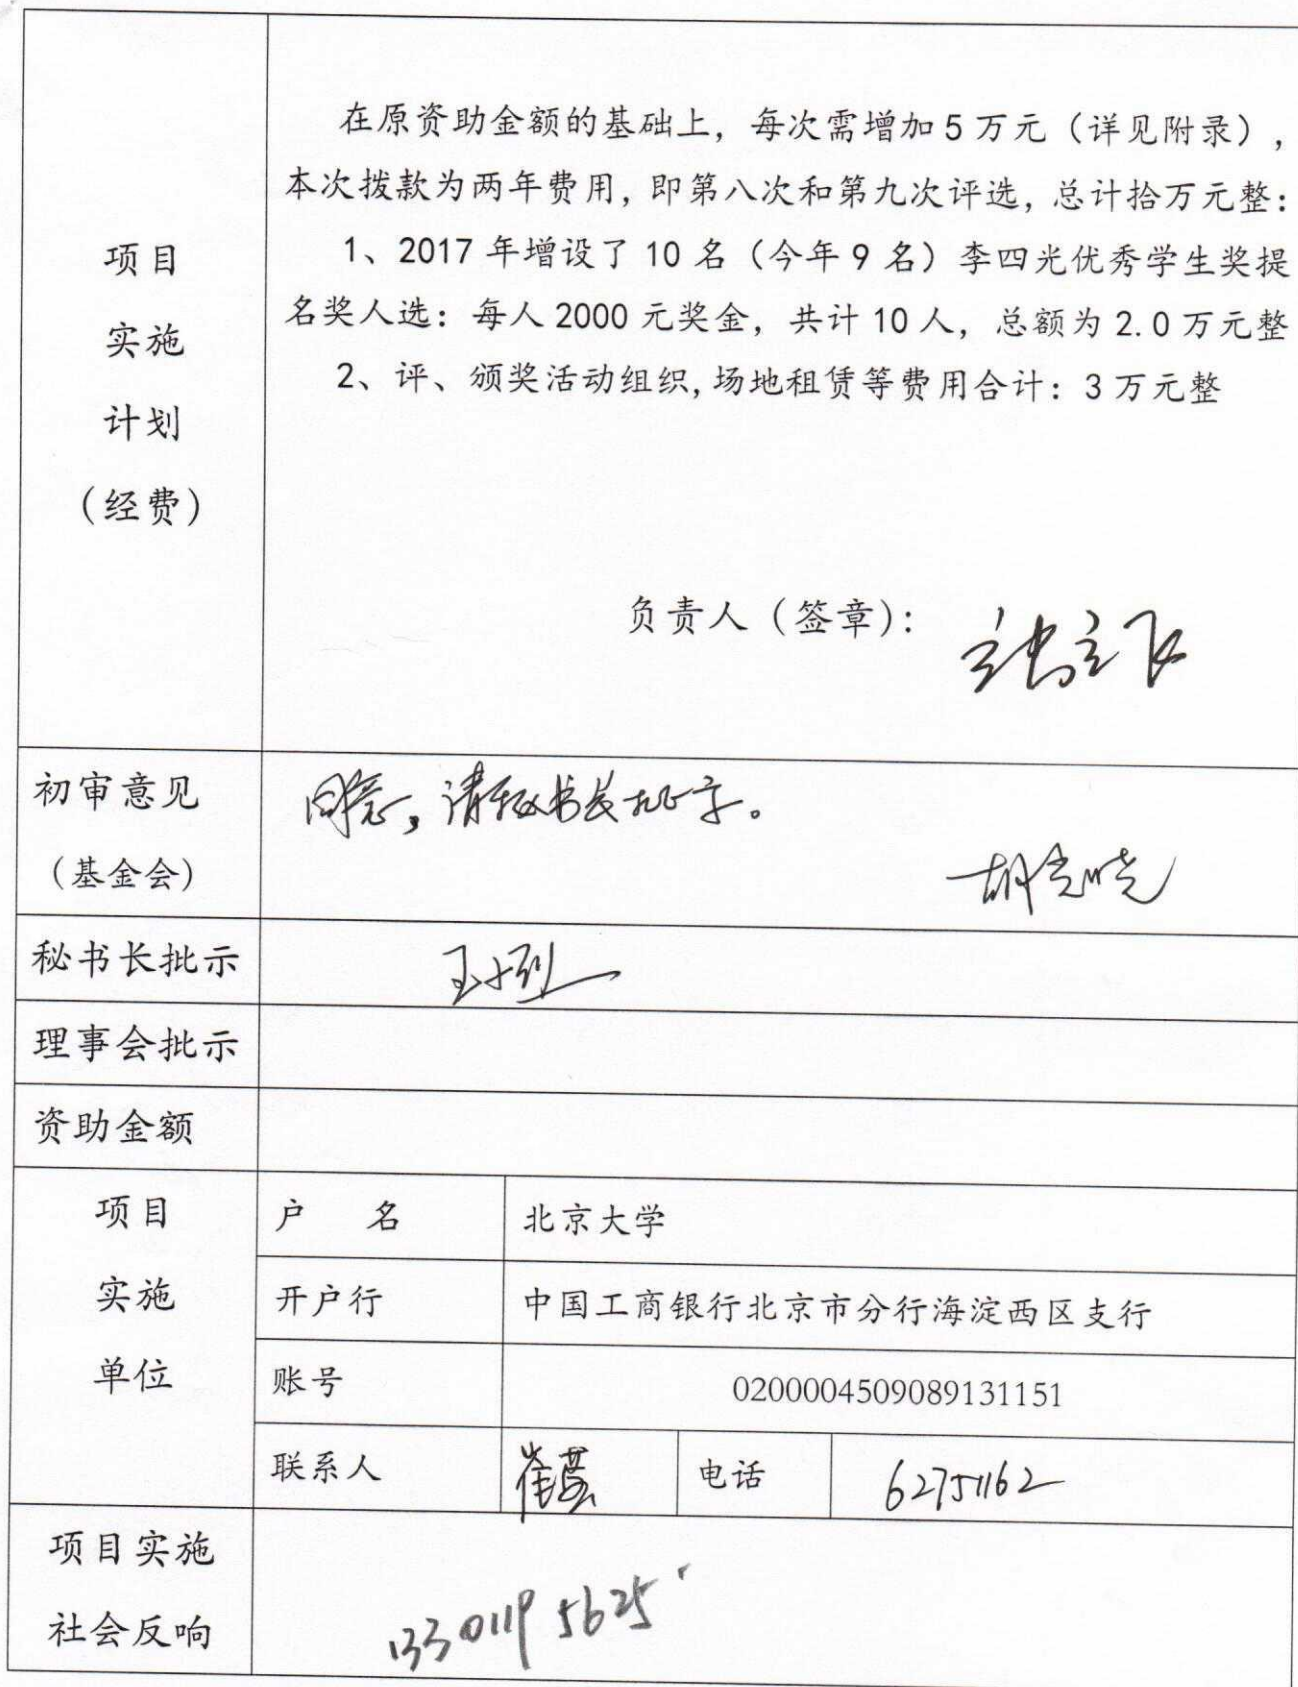 在原资助金额的基础上，每次需增加5万元（详见附录），
本次拨款为两年费用，即第八次和第九次评选，总计拾万元整：
1、2017年增设了10名（今年9名）李四光优秀学生奖提
名奖人选：每人2000元奖金，共计10人，总额为2.0万元整
2、评、颁奖活动组织,场地租赁等费用合计：3万元整
项目
实施
计划
（经费）
负责人（签章）：
初审意见
（基金会）
同意，请秘书长批示。
胡光晓
秘书长批示
理事会批示
资助金额
项目
实施
单位
户 名
北京大学
开户行
中国工商银行北京市分行海淀西区支行
账号
0200004509089131151
联系人
崔莹
电话
62751162
项目实施
社会反响
13301195625